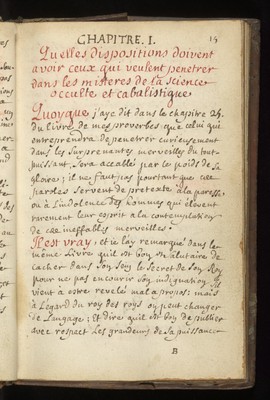 CHAPITRE. I. 15
Quelles dispositions doivent
avoir ceux qui veulent penetrer
dans les misteres de la science
occulte et cabalistique
Quoyque j'aye dit dans le chapitre 25.
du livre de mes proverbes que celui qui
entreprendra de penetrer curieusement
dans les surprenantes merveilles du tout
puissant, sera accablé par le poids de sa
gloire; il ne faut pas pourtant que ces
paroles servent de pretexte à la paresse,
ou à l'indolence des hommes qui élevent
rarement leur esprit à la contemplation
de ces ineffables merveilles.
Il est vray, et je l'ay remarqué dans le
meme livre qu'il est bon et salutaire de
cacher dans son sein le secret de son Roy
pour ne pas encourir son indignation s'il
vient à estre revelé mal a propos: mais
à l'egard du roy des roys on peut changer
de langage; et dire qu'il est bon de publier
avec respect les grandeurs de sa puissance
B